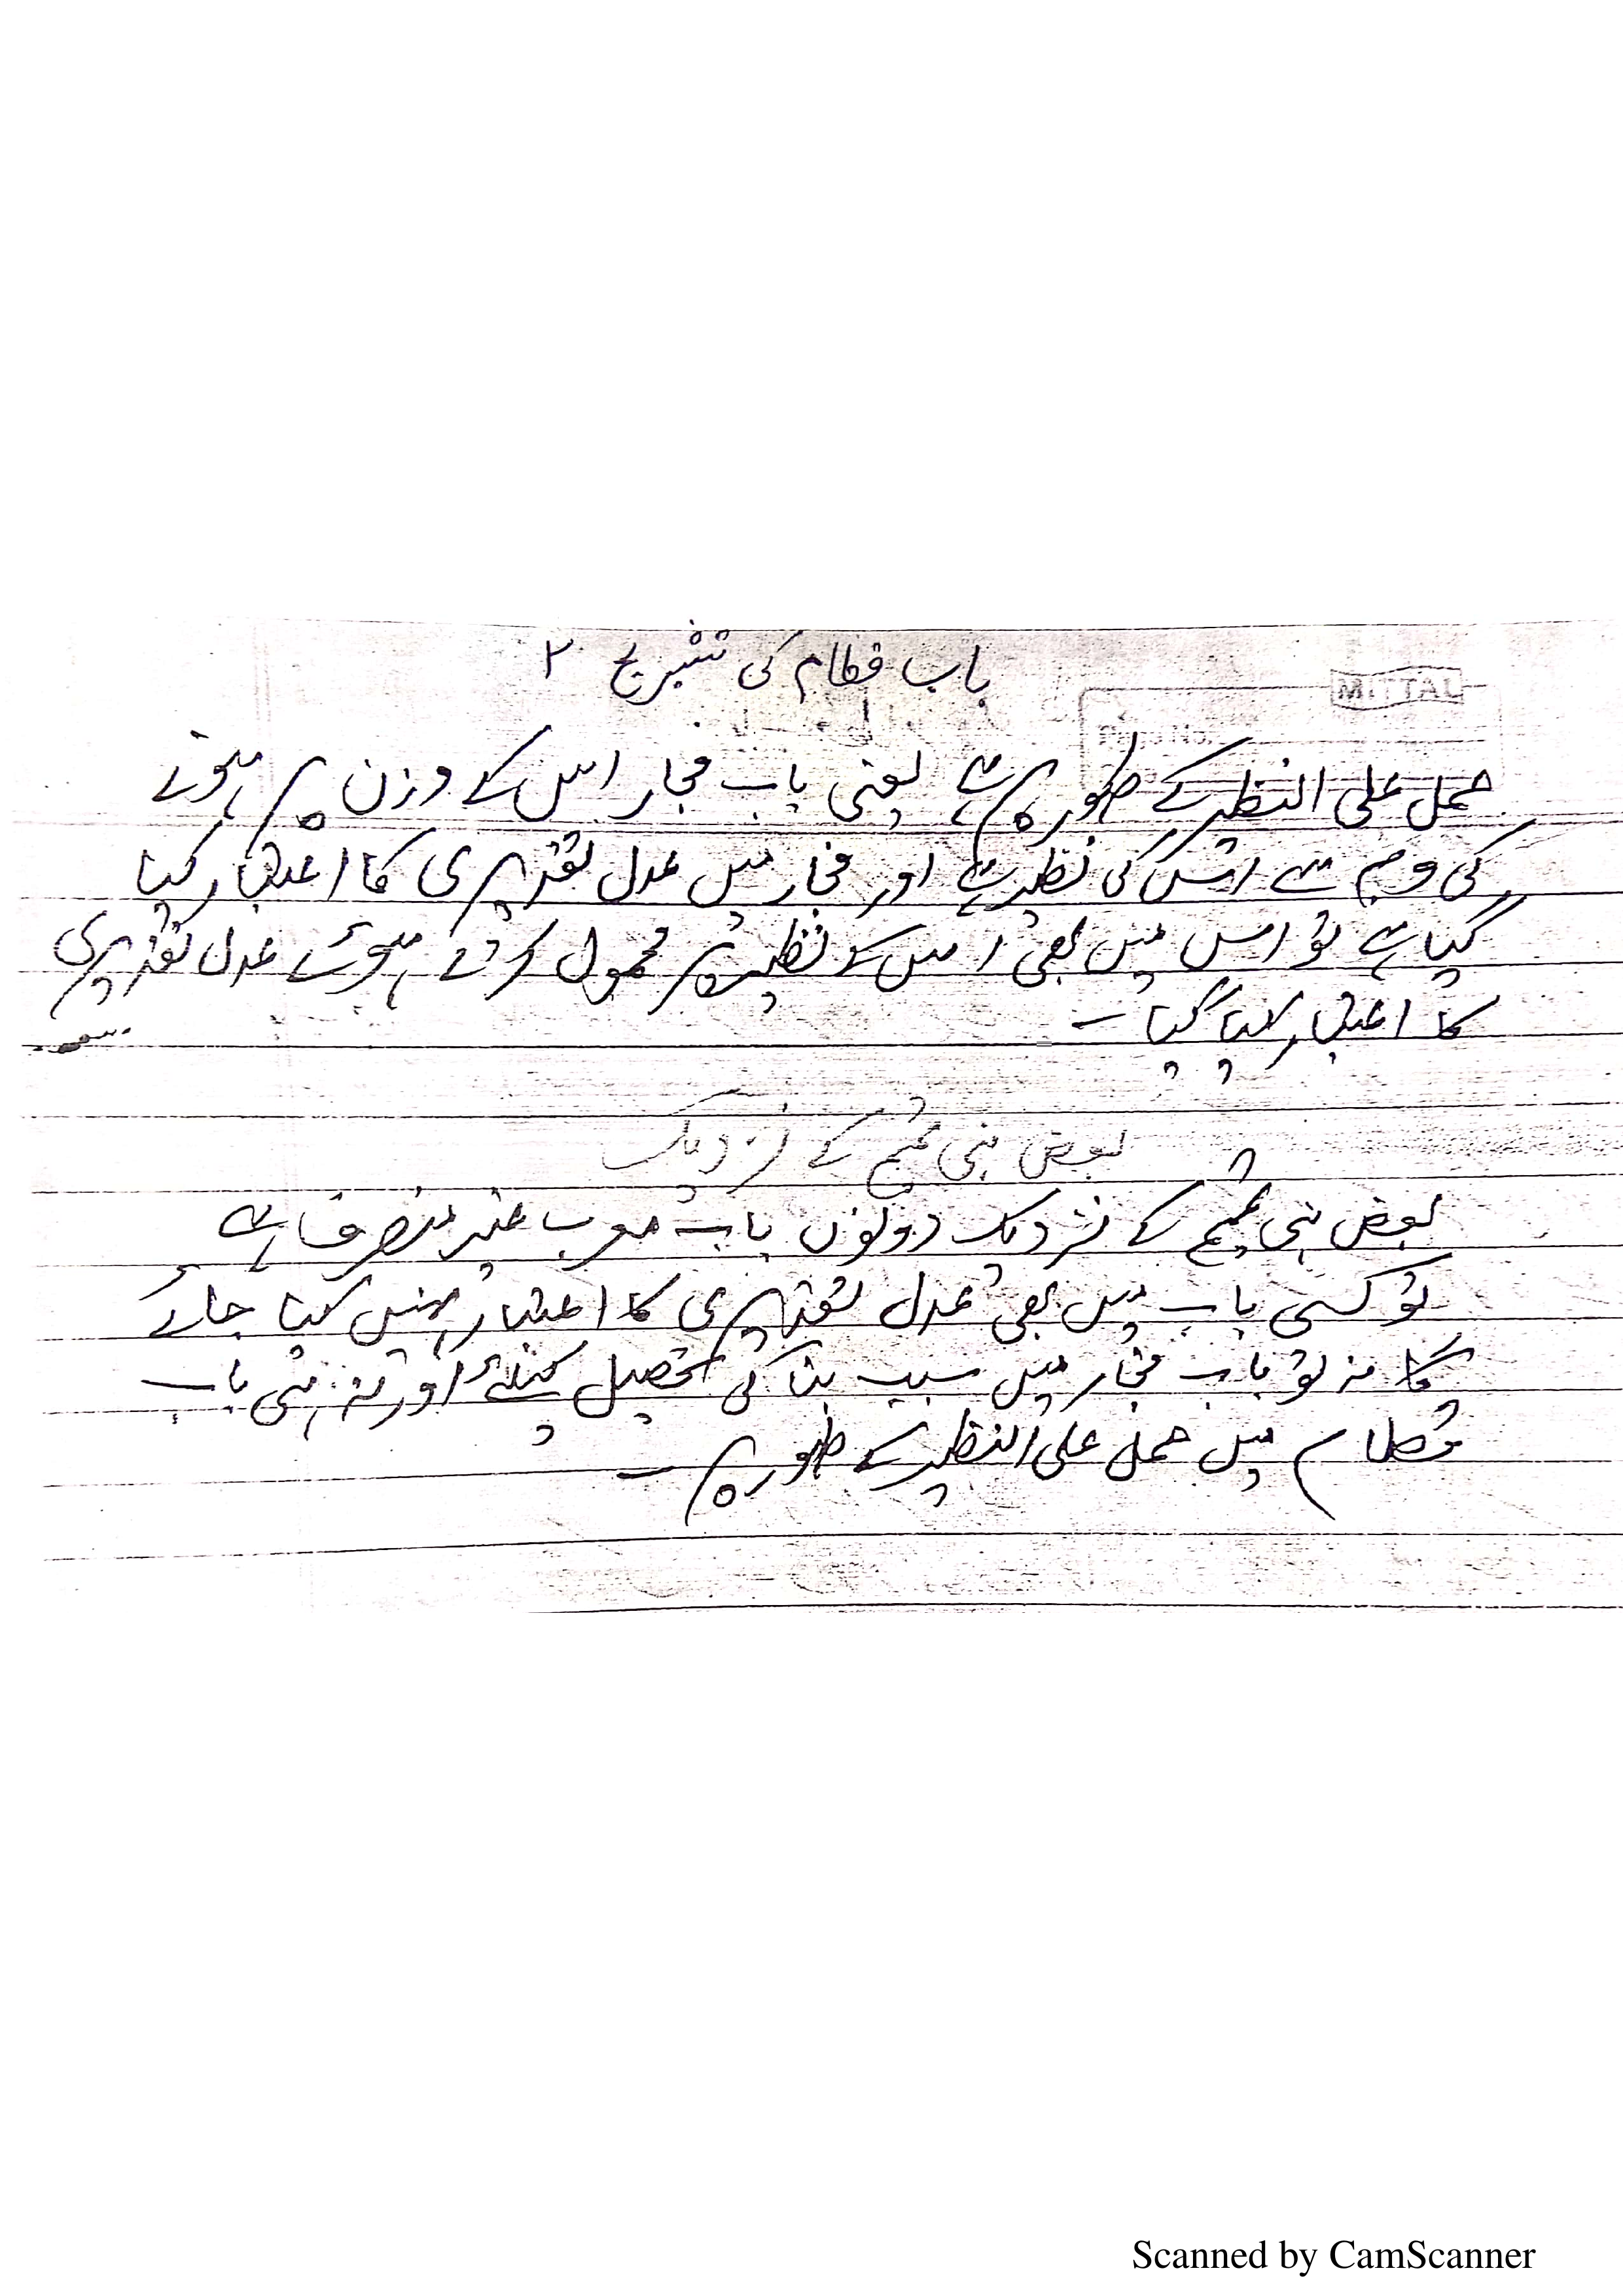 باب قطام کی تشریح ۲
MITTAL
Page No.
حمل علی النظیر کے طور پر ہے یعنی باب فجار اس کے وزن پر ہونے
کی وجہ سے اس کی نظیر ہے اور فجار میں عدل تقدیری کا اعتبار کیا
گیا ہے تو اس میں بھی اس کے نظیر پر محمول کرتے ہوئے عدل تقدیری
کا اعتبار کیا گیا۔
بعض بنی تمیم کے نزدیک
بعض بنی تمیم کے نزدیک دونوں باب معرب غیر منصرف ہے
تو کسی باب میں بھی عدل تقدیری کا اعتبار نہیں کیا جائے
گا نہ تو باب فجار میں سبب بنا کی تحصیل کیلئے اور نہ ہی باب
قطام میں حمل علی النظیر کے طور پر۔
Scanned by CamScanner